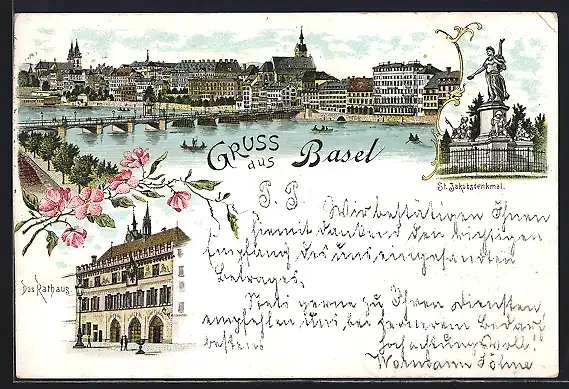 GRUSS
aus Basel
St. Jakobsdenkmal.
Das Rathaus.
P. P.
Wir bestätigen Ihnen
hiemit dankend den richtigen
Empfang des uns eingesandten
Betrages.
Stets gerne zu Ihren Diensten
empfehlen uns bei fernerem Bedarf
bestens
Hochachtungsvoll!
Wormann Söhne